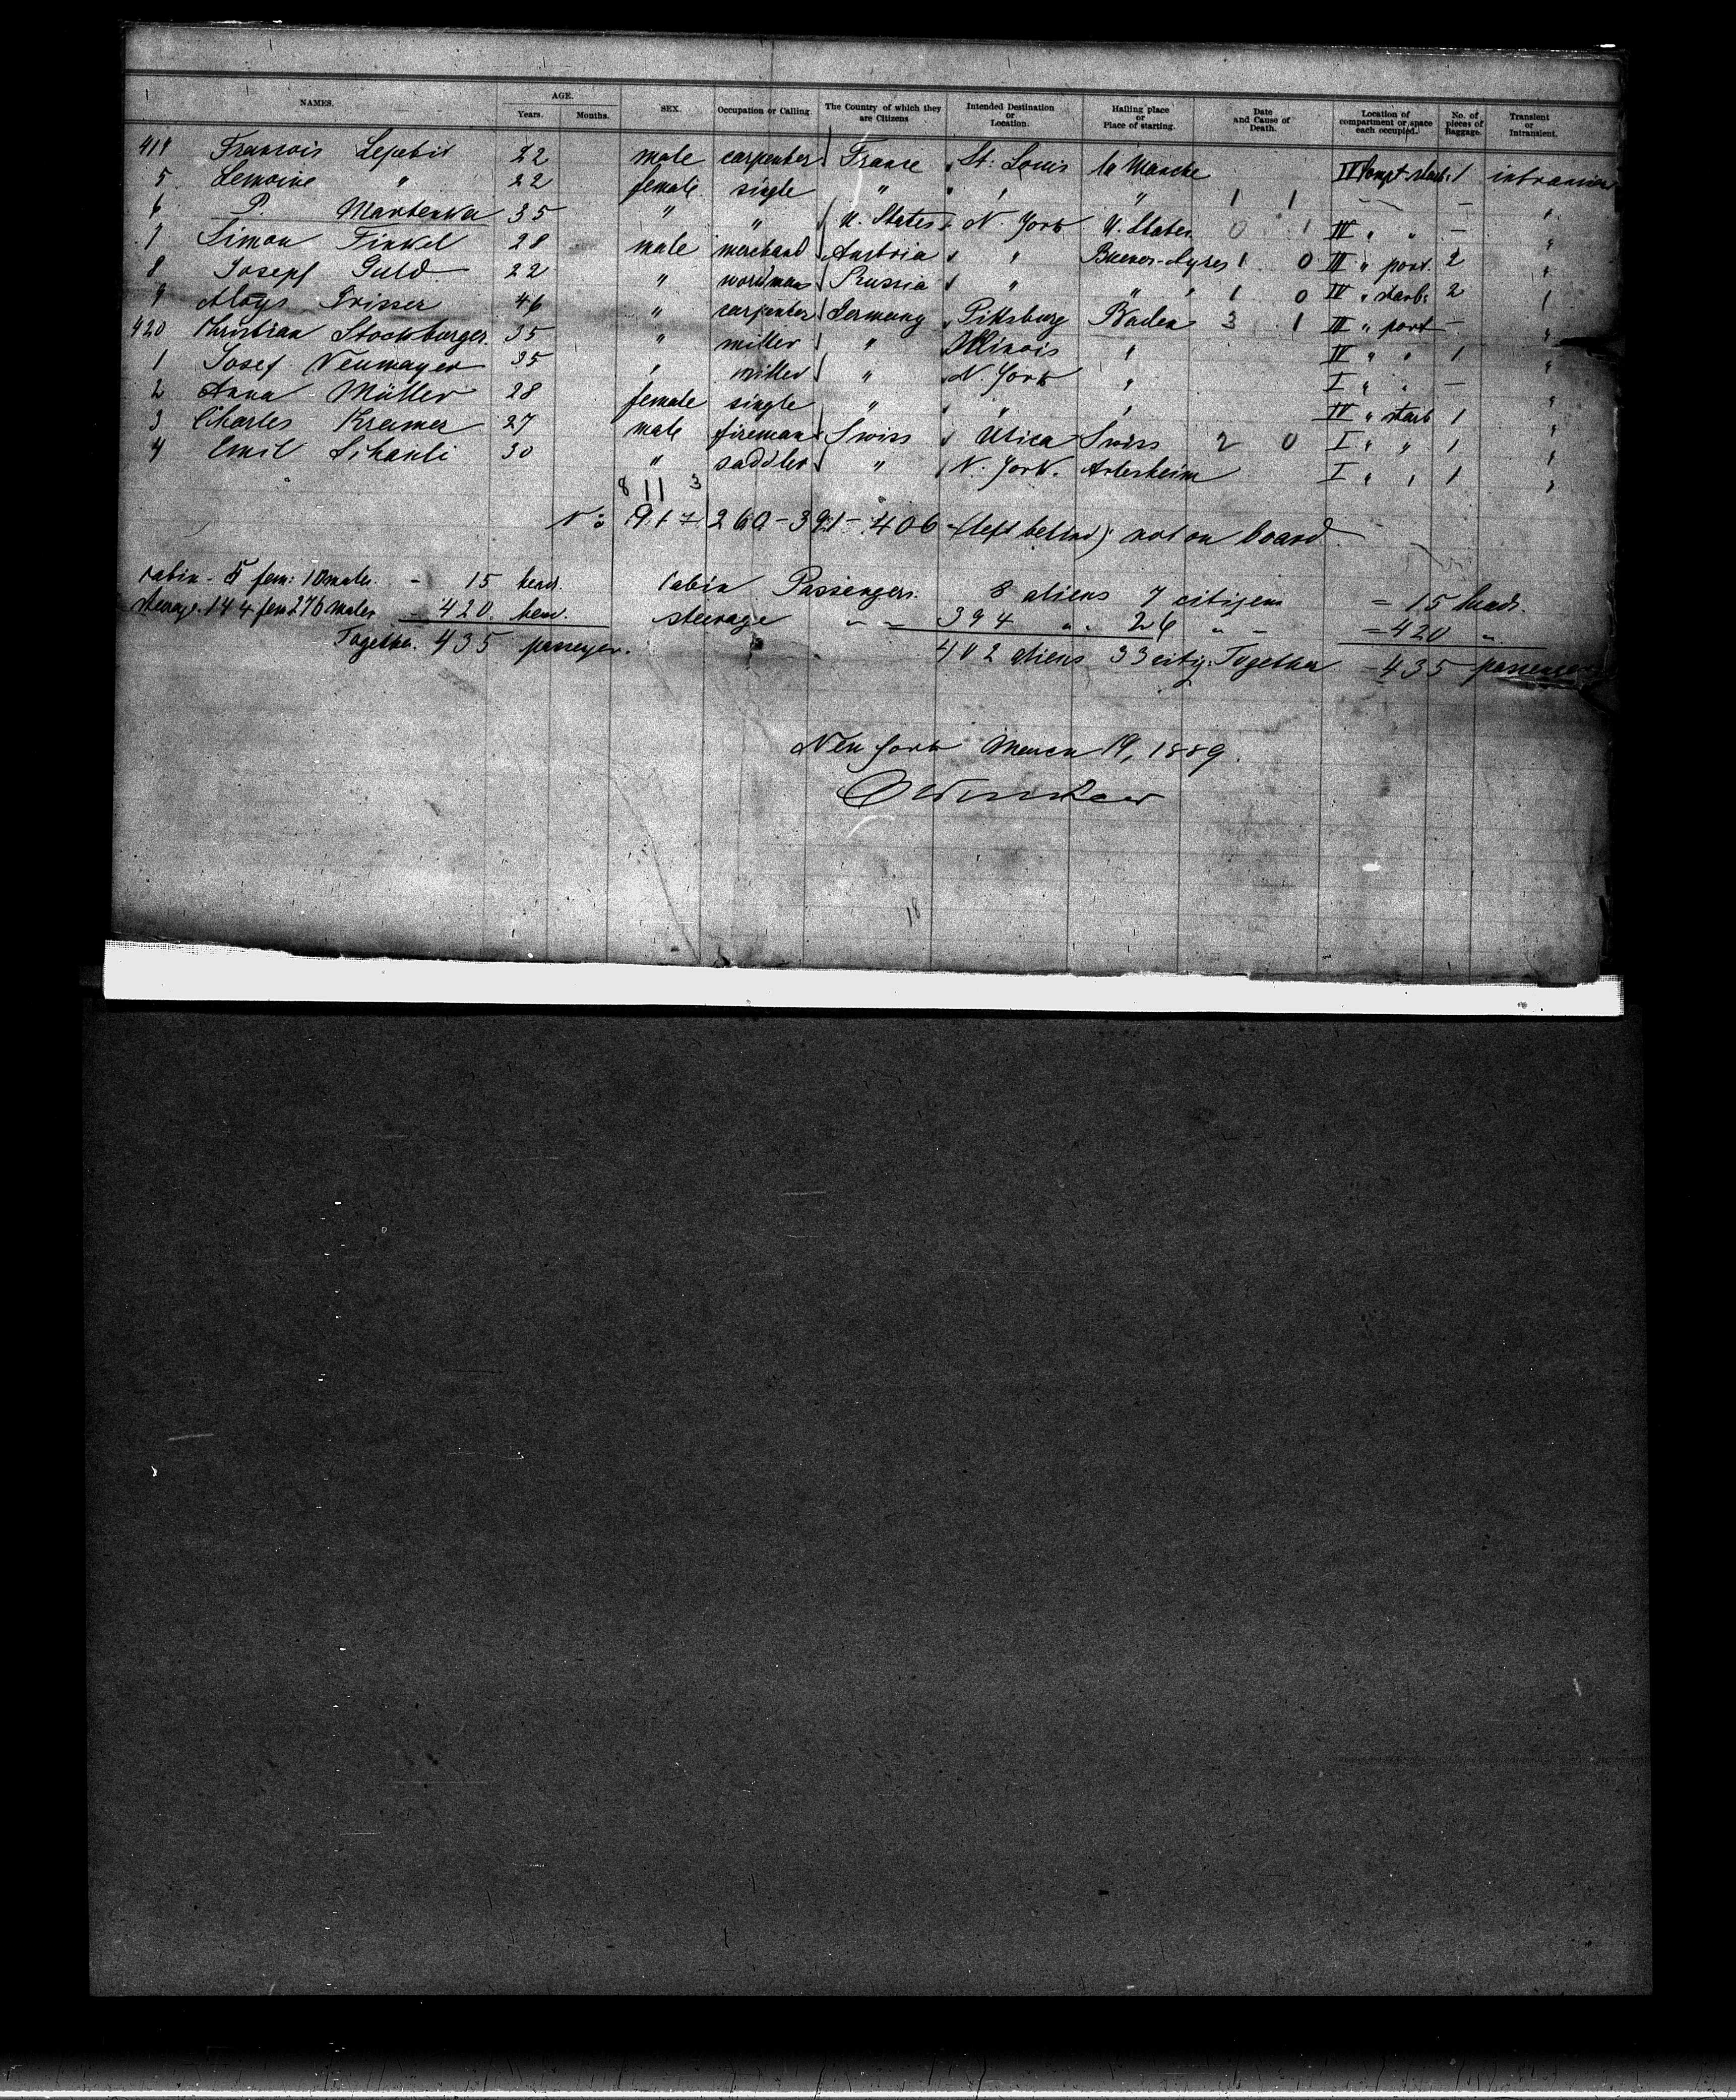 NAMES. AGE. Years. Months. SEX. Occupation or Calling. The Country of which they are Citizens Intended Destination or Location. Hailing place or Place of starting. Date and Cause of Death. Location of compartment or space each occupied. No. of pieces of Baggage. Transient or Intransient.
414 Francois Lepetit 22 male carpenter France St: Louis la Manche IV Compt starb: 1
5 Lemoine " 22 female single " " " 1 1 — —
6 P. 35 " " U. States N. York U. States 0 1 IV " " —
7 Simon Finkel 28 male merchand Austria " Buenos-Ayres 1 0 III " port. 2
8 Josepf Guld 22 " workman Russia " " 1 0 IV " starb: 2
9 Aloys 46 " carpenter Germany Pittsburg Baden 3 1 III " port —
420 Christian Stockburger 35 " miller " Illinois " IV " " 1
1 Josef Neumayer 35 " miller " N. York " I " " —
2 Anna Müller 28 female single " " " IV " starb 1
3 Charles Kramer 27 male fireman Swiss Utica Swiss 2 0 I " " 1
4 Emil 30 " saddler " N. York. Arlesheim I " " 1
8 11 3
260 - 391 - 406 - not on board
Cabin - 5 fem: 10 males - 15 heads. Cabin Passengers. 8 aliens 7 citizens = 15 heads.
Steerage. 144 fem 276 males = 420. head. steerage " = 394 " 26 " = 420 "
Together. 435 passenger. 402 aliens 33 citiz: Together = 435 passengers
New York March 19, 1889.
18